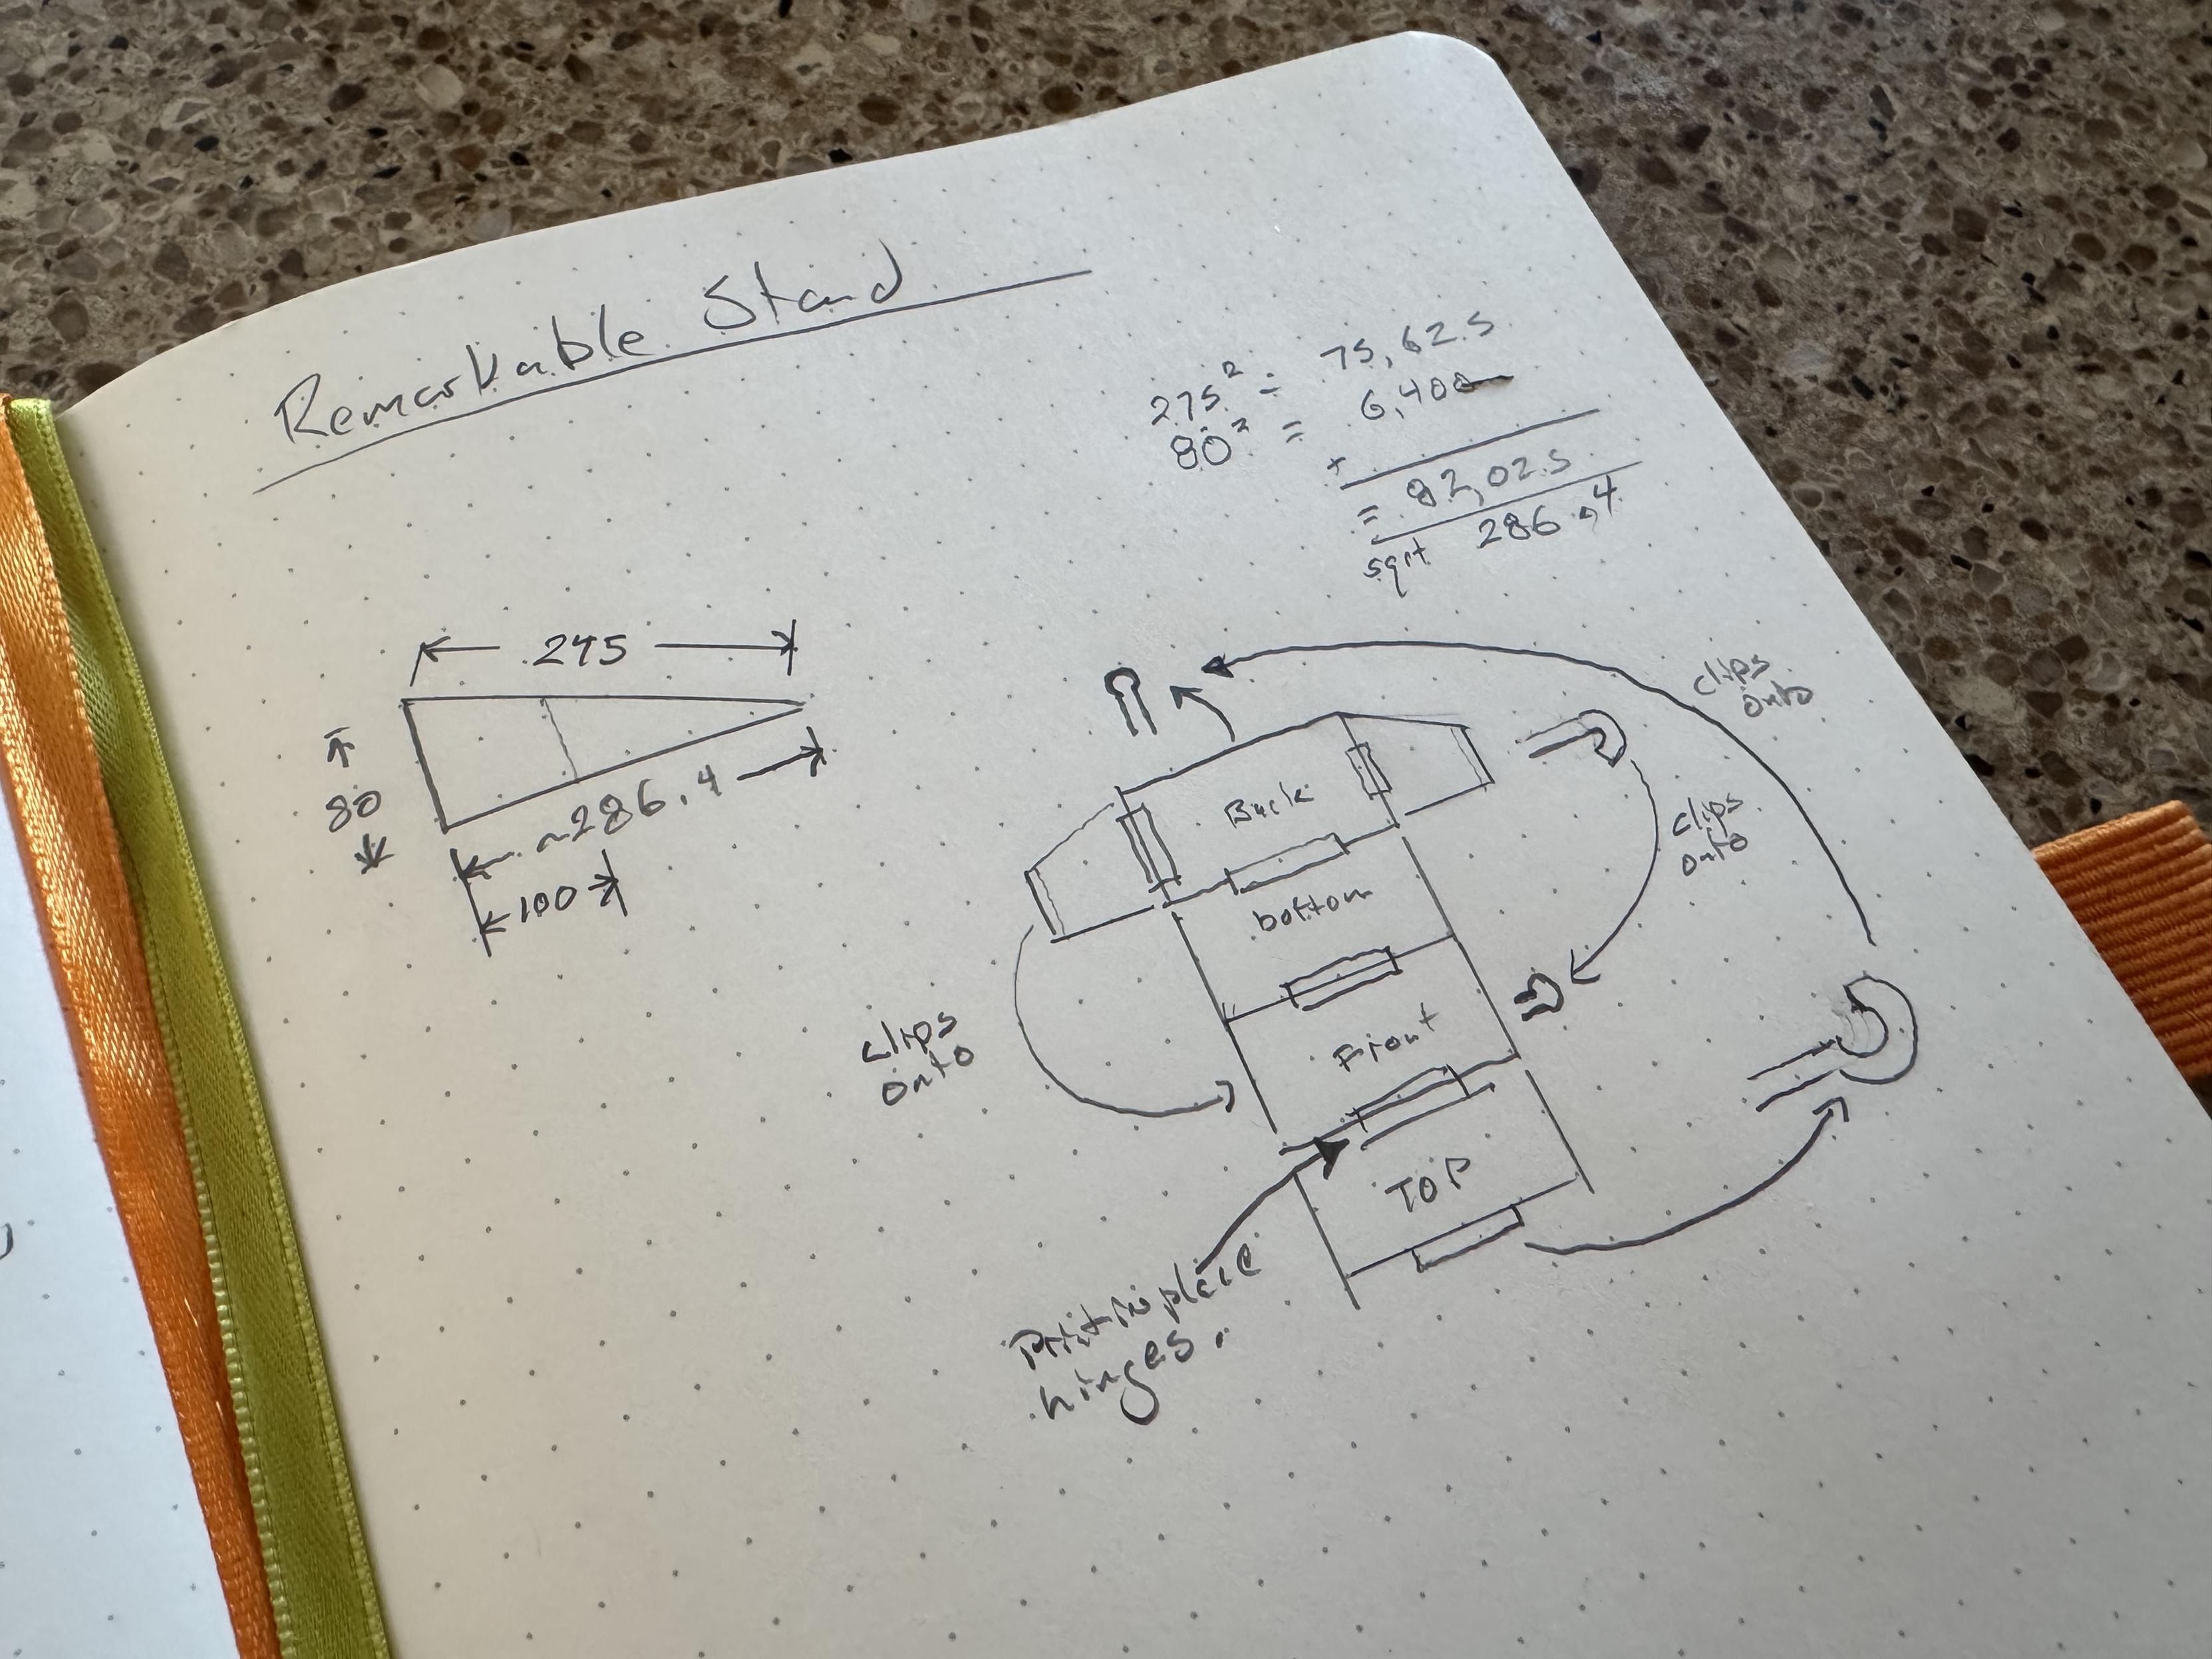 Remarkable Stand
275² = 75,625
80² = 6,400
+
= 82,025
sqrt 286.4
275
80
~286.4
100
clips
onto
clips
onto
Back
bottom
Front
TOP
clips
onto
Print in place
hinges.